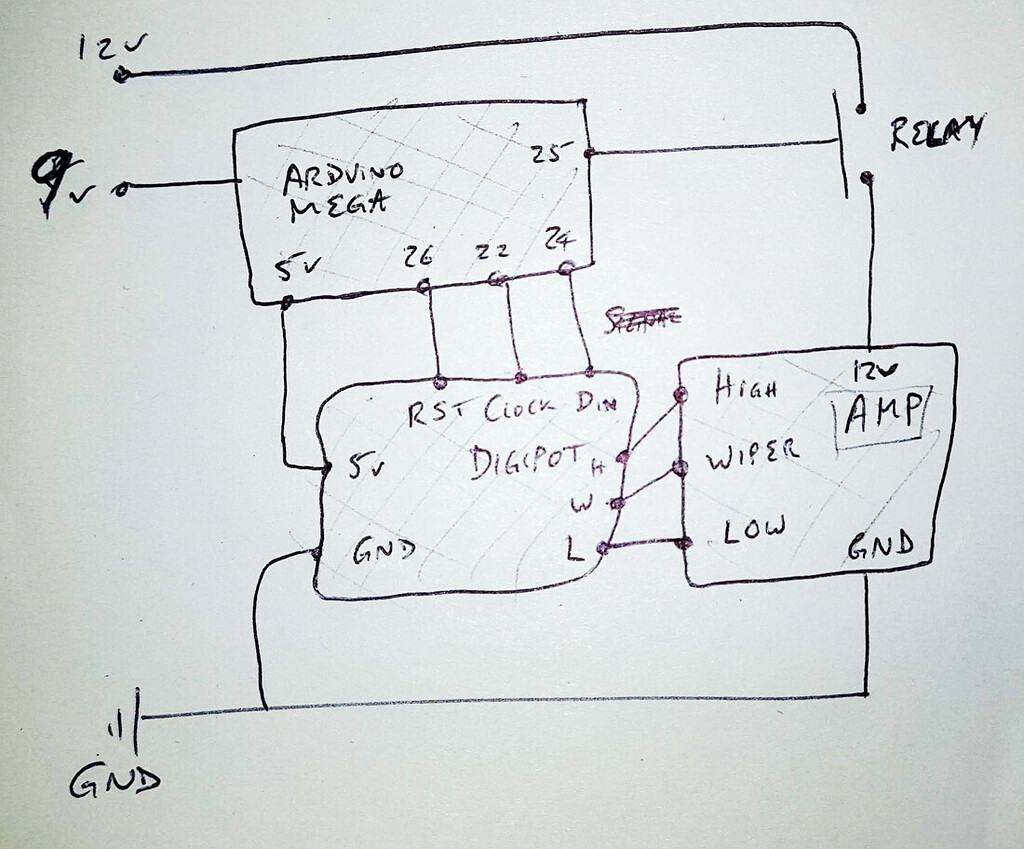 12v
RELAY
9v
ARDUINO
MEGA
25
5v
26
22
24
RST CLOCK DIN
5v
DIGIPOT H
W
L
GND
HIGH
12v
AMP
WIPER
LOW
GND
GND